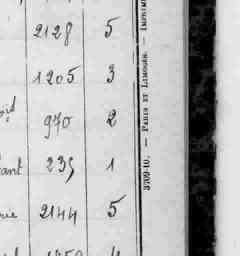 2128 5
1205 3
970 2
ant 235 1
rie 2144 5
3709-10. — PARIS ET LIMOGES. — IMPRIM